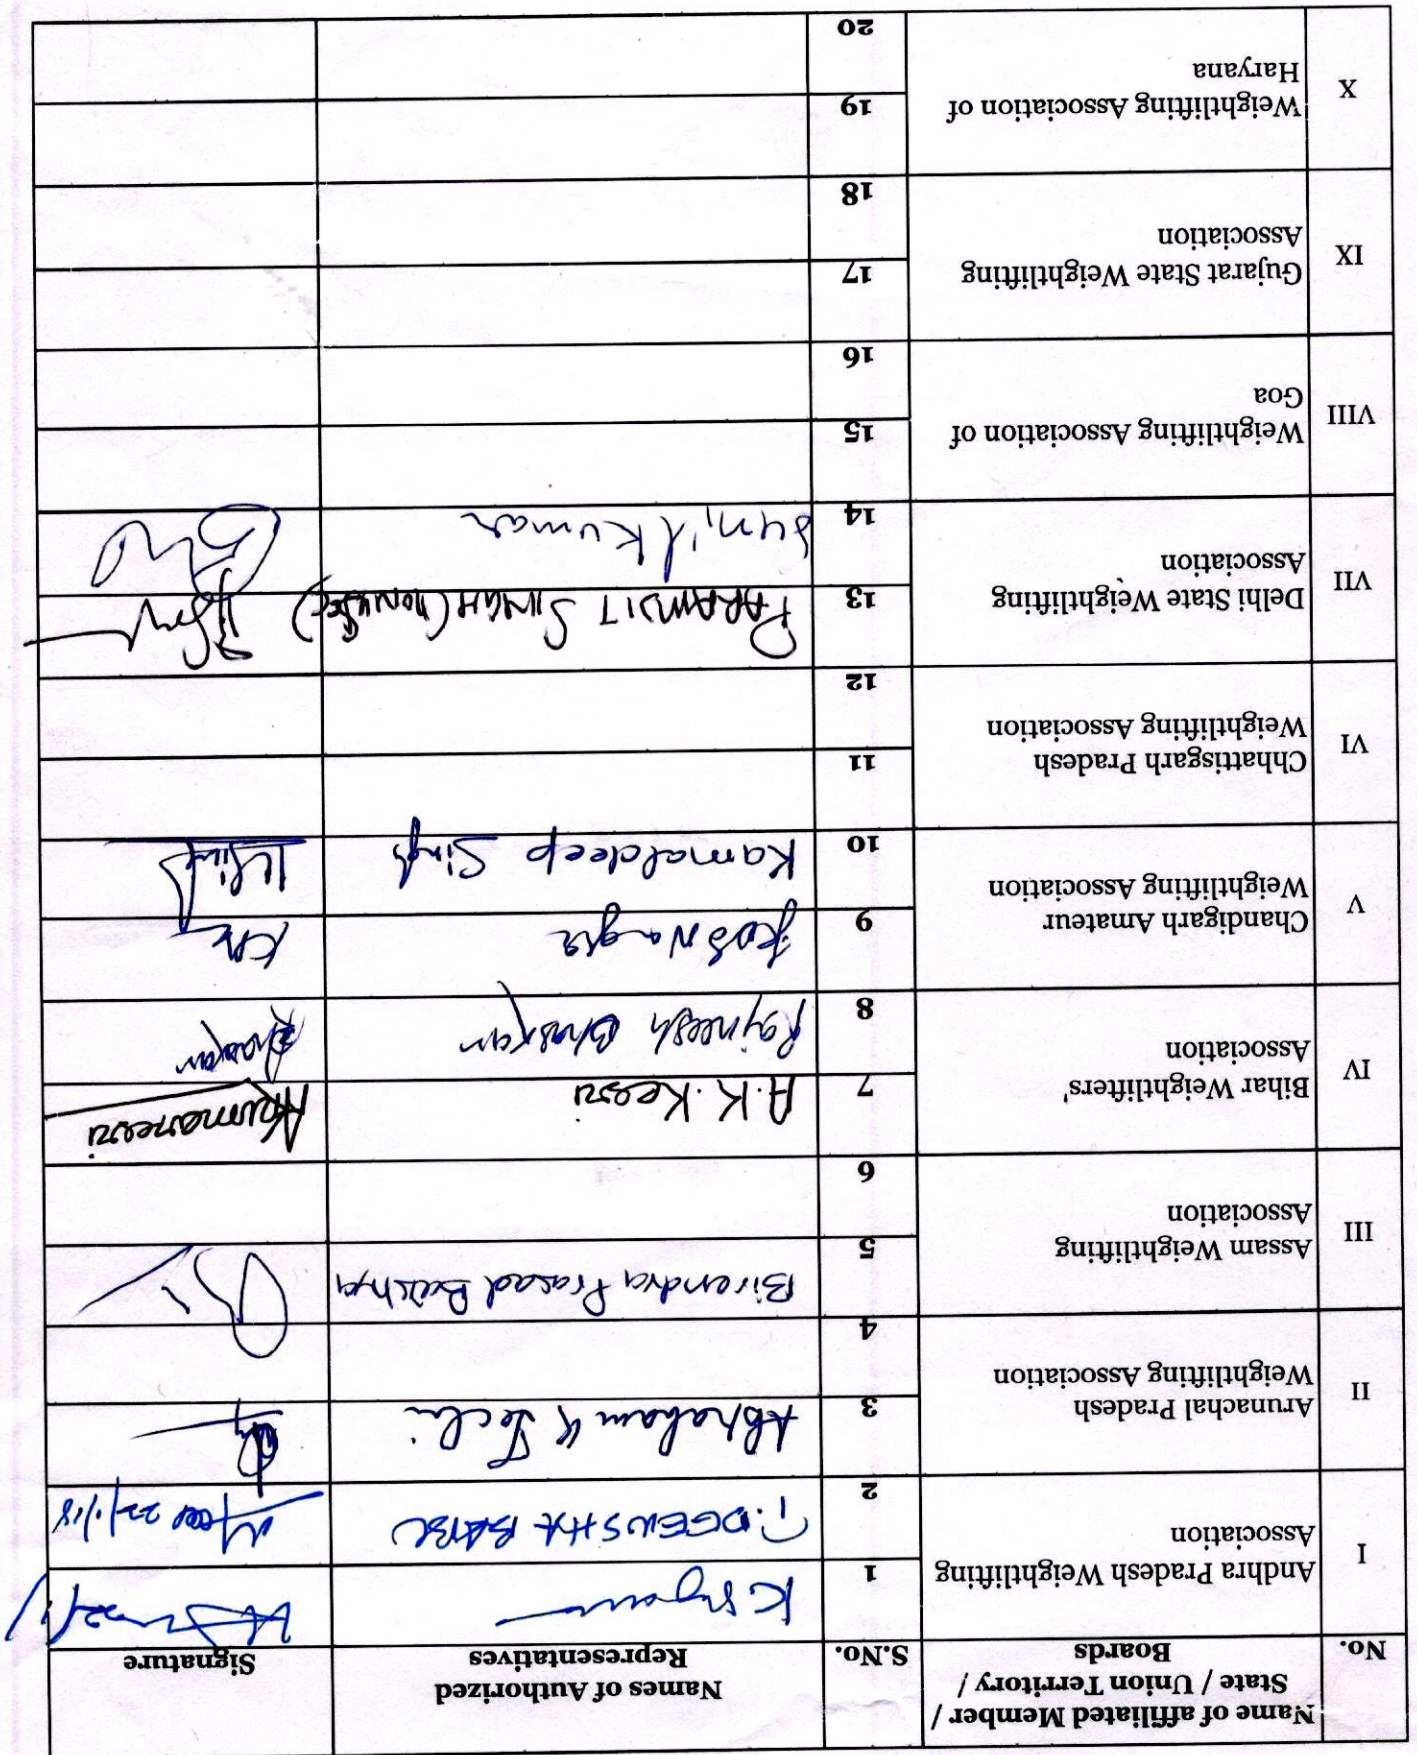 No.
Name of affiliated Member /
State / Union Territory /
Boards
S.No.
Names of Authorized
Representatives
Signature
I
Andhra Pradesh Weightlifting
Association
1
K
2
BABU
22/1/18
II
Arunachal Pradesh
Weightlifting Association
3
Abraham K Techi
4
III
Assam Weightlifting
Association
5
Birendra Prasad Baishya
6
IV
Bihar Weightlifters'
Association
7
A.K. Kesri
8
Rajneesh Bhaskar
Bhaskar
V
Chandigarh Amateur
Weightlifting Association
9
10
Kamaldeep Singh
VI
Chhattisgarh Pradesh
Weightlifting Association
11
12
VII
Delhi State Weightlifting
Association
13
PARAMJIT SINGH
14
Sunil Kumar
VIII
Weightlifting Association of
Goa
15
16
IX
Gujarat State Weightlifting
Association
17
18
X
Weightlifting Association of
Haryana
19
20